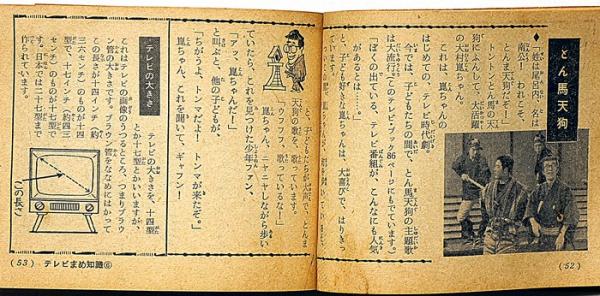 とん馬天狗
◆「姓は尾呂内、名は
南公！　われこそ、
とん馬天狗だぞ！」
トントントン馬の天
狗にふんして、大活躍
の大村崑ちゃん。
これは、崑ちゃんの
はじめての、テレビ時代劇。
今では、子どもたちの間で、とん馬天狗の主題歌
は大流行？（このテレビブック86ページにもでています）
「ぼくの出ている、テレビ番組が、こんなにも人気
があるとは……。」
と、子ども好きな崑ちゃんは、大喜びで、はりきっ
ています。
(52)
と、子どもたちが大声で、とんま
天狗の歌を、歌っています。
「ウッフフ、歌っているな！」
崑ちゃん、ニヤニヤしながら歩い
ていたら、これを見つけた少年ファン、
「アッ、崑ちゃんだ！」
と叫ぶと、他の子どもが、
「ちがうよ、トンマだよ！　トンマが来たぞ。」
崑ちゃん、これを聞いて、ギャフン！
テレビの大きさ
テレビの大きさを、十四型
とか十七型とかいいますが、
これはテレビの画像のうつるところ、つまりブラウ
ン管の大きさです。ブラウン管をななめにはかって
この長さが十四インチ（約
三六センチ）のものが十四
型で、十七インチ（約四三
センチ）のものが十七型で
す。日本では二十七型まで
作られています。
この長さ
(53)　テレビまめ知識⑥